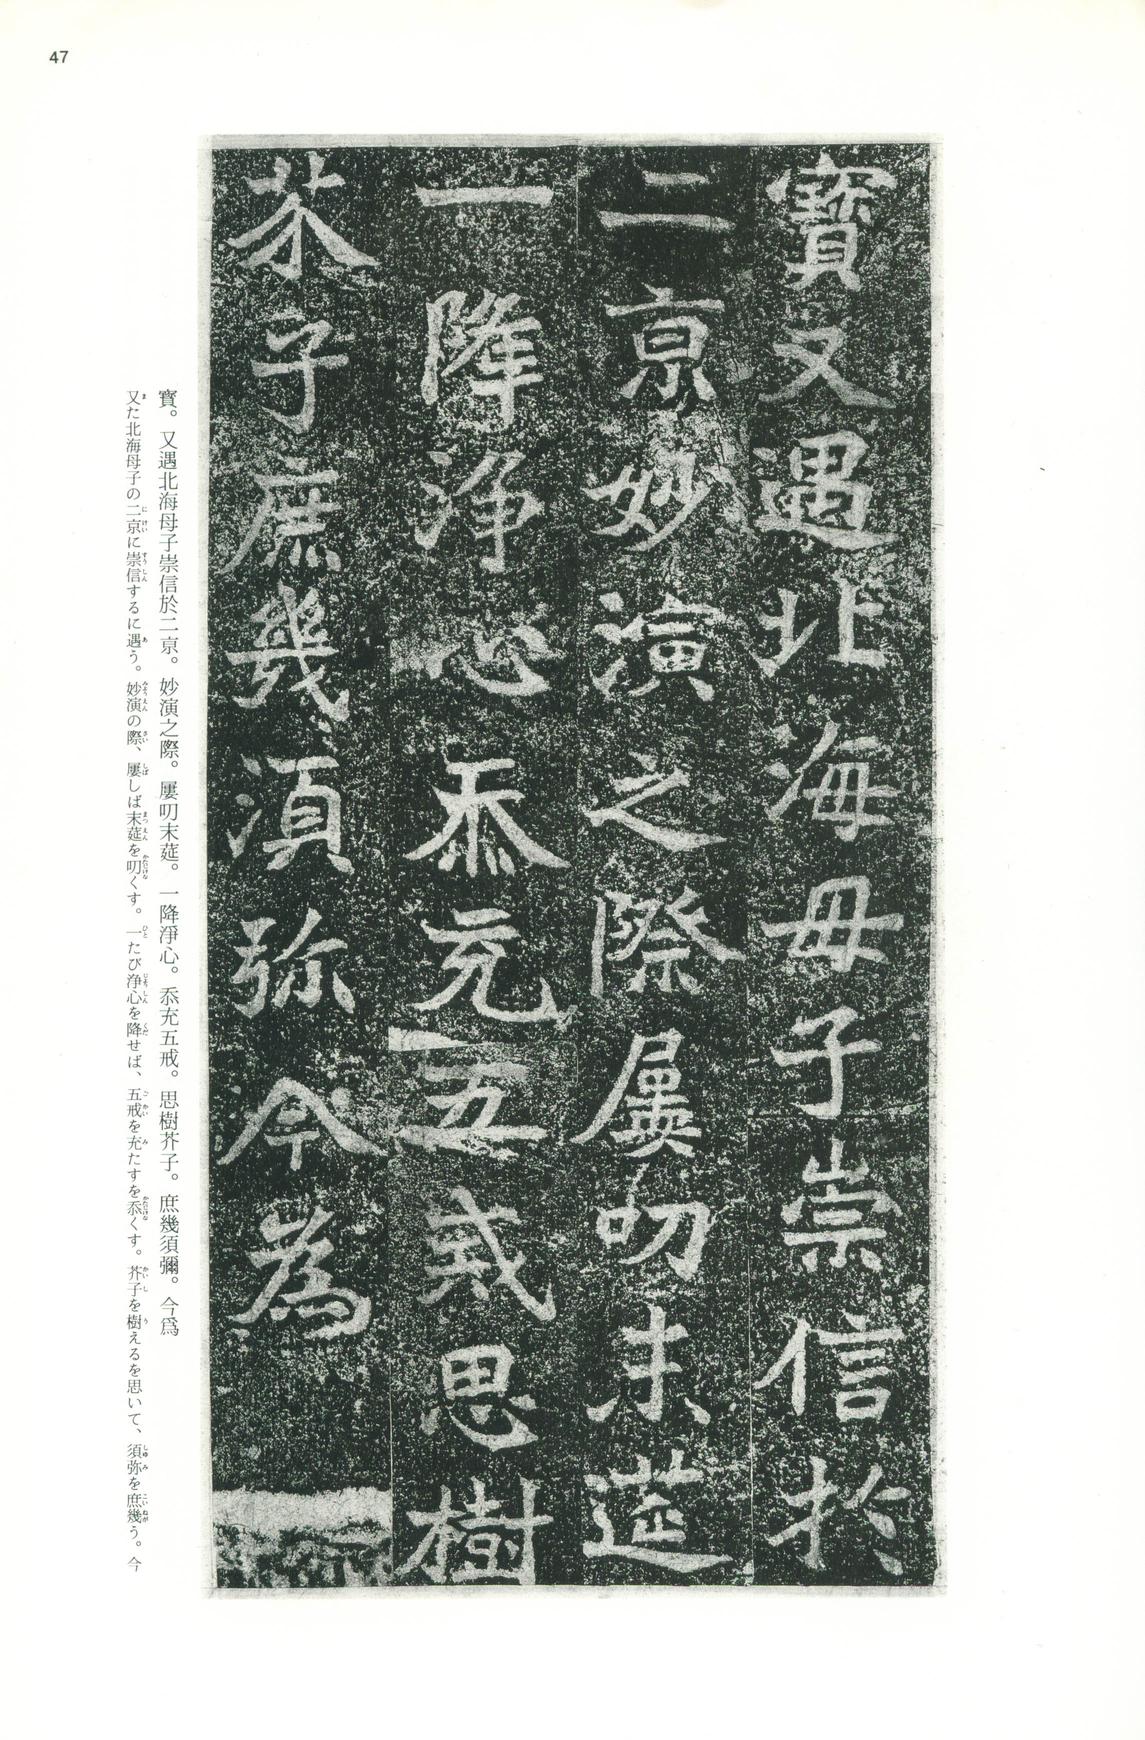 47
寳又遇北海母子崇信於
二京妙演之際屢叨末莚
一降浄心忝充五戒思樹
芥子庶幾須弥今為
寳。又遇北海母子崇信於二京。妙演之際。屢叨末莚。一降淨心。忝充五戒。思樹芥子。庶幾須彌。今爲
又た北海母子の二京に崇信するに遇う。妙演の際、屢しば末莚を叨くす。一たび浄心を降せば、五戒を充たすを忝くす。芥子を樹えるを思いて、須弥を庶幾う。今